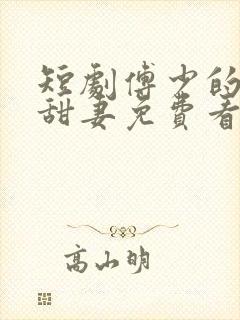 短劇傅少的
甜妻免費看
高山明